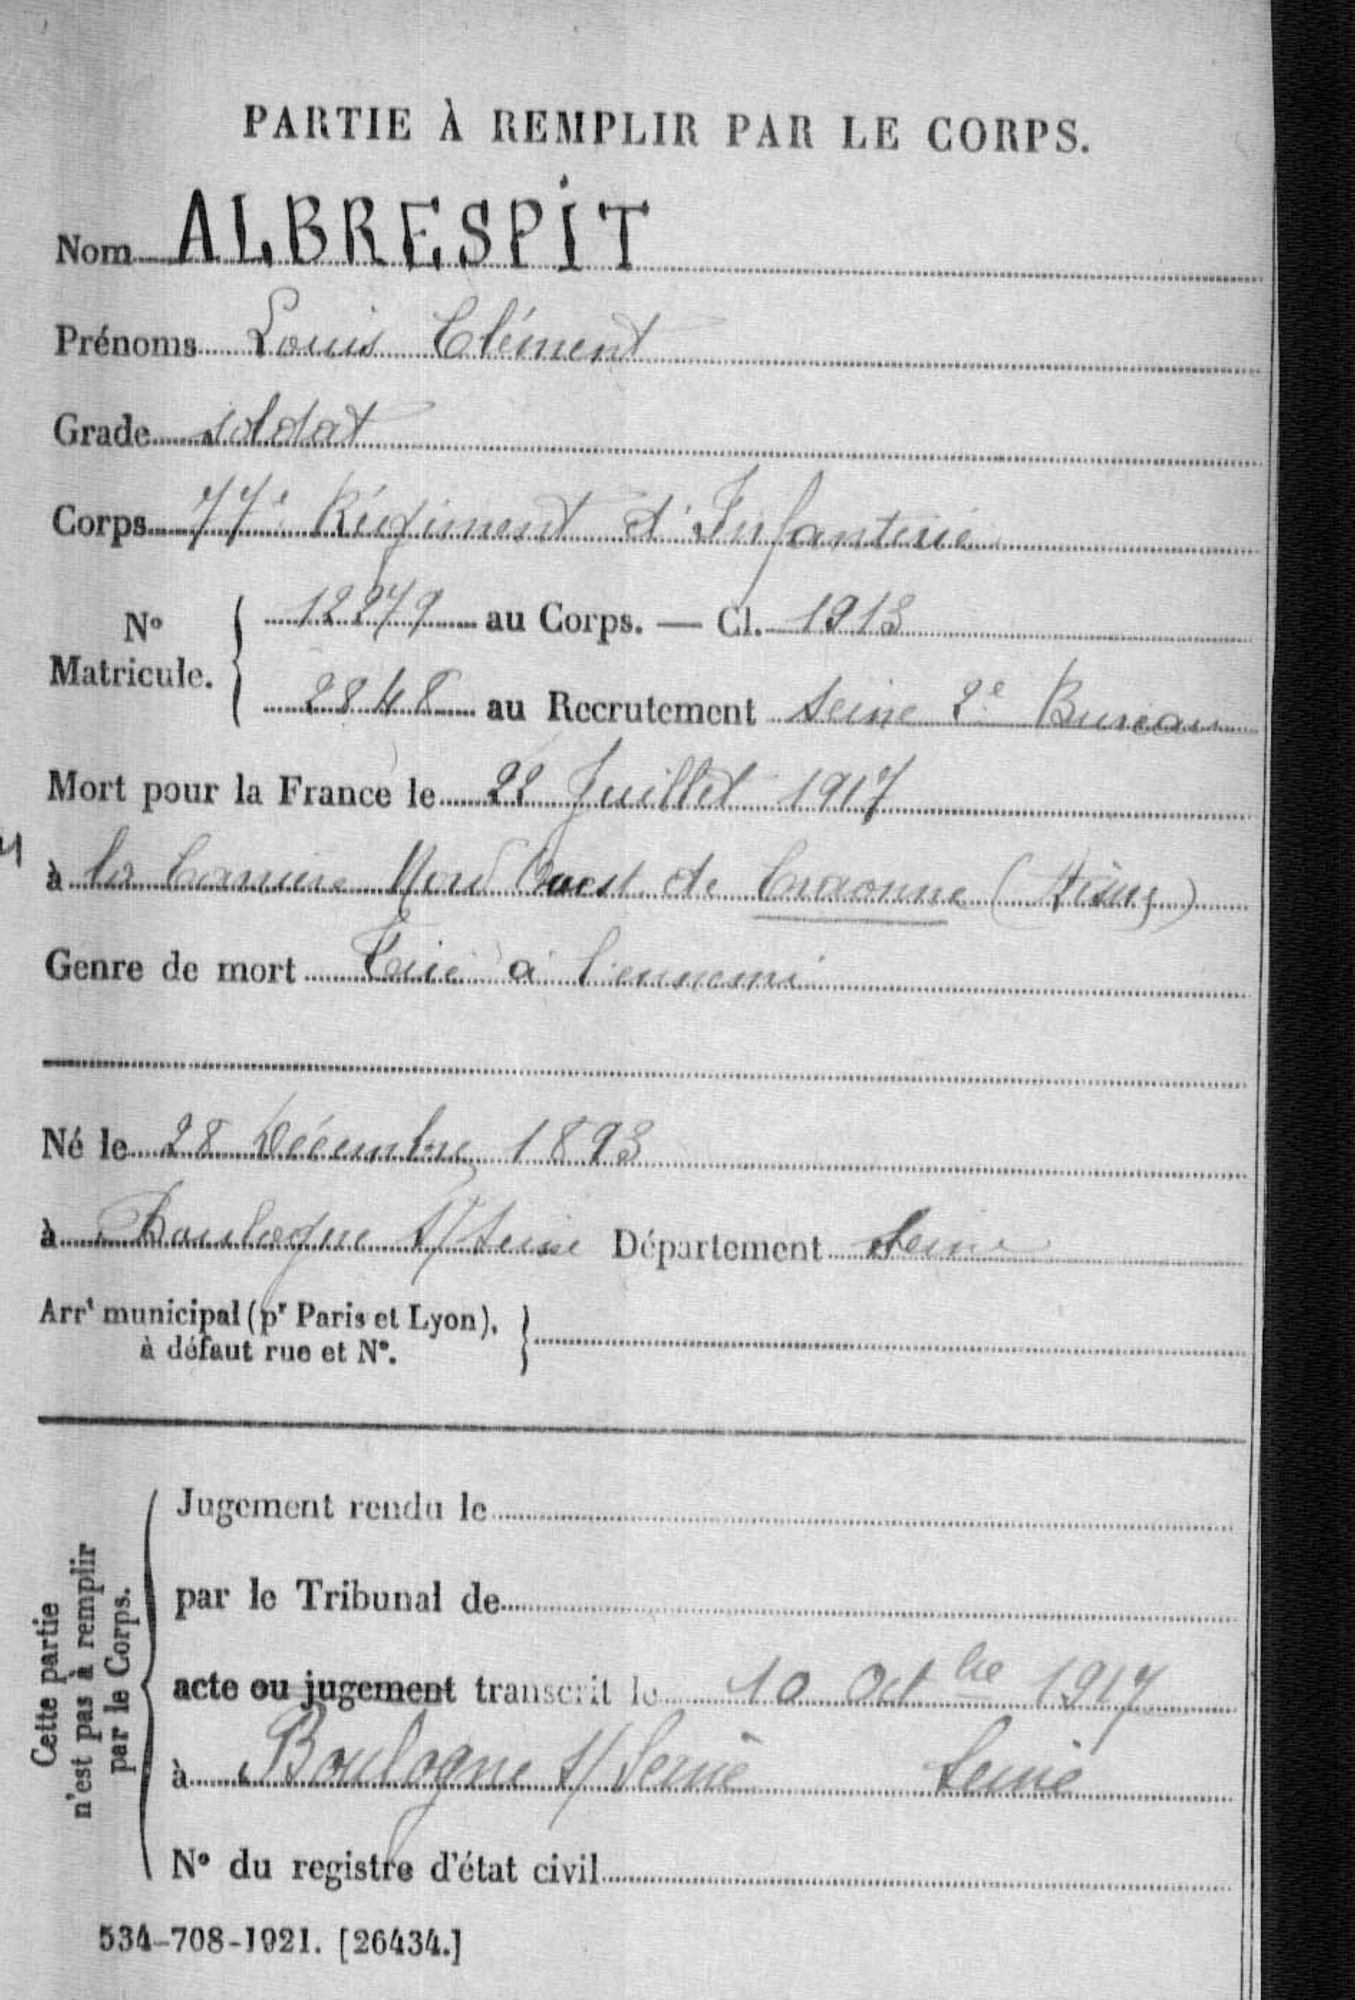 PARTIE À REMPLIR PAR LE CORPS.
Nom ALBRESPIT
Prénoms Louis Clément
Grade soldat
Corps 77e Régiment d'Infanterie
No Matricule. { 12279 au Corps. — Cl. 1913
2848 au Recrutement Seine 2e Bureau
Mort pour la France le 22 Juillet 1917
à la Carrière Nord Ouest de Craonne (Aisne)
Genre de mort Tué à l'ennemi
Né le 28 Décembre 1893
à Boulogne s/Seine Département Seine
Arrt municipal (pr Paris et Lyon),
à défaut rue et No. }
Cette partie
n'est pas à remplir
par le Corps.
Jugement rendu le
par le Tribunal de
acte ou jugement transcrit le 10 Octbre 1917
à Boulogne s/ Seine Seine
No du registre d'état civil
534-708-1921. [26434.]